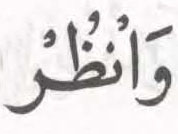 وَاْنْظُرْ